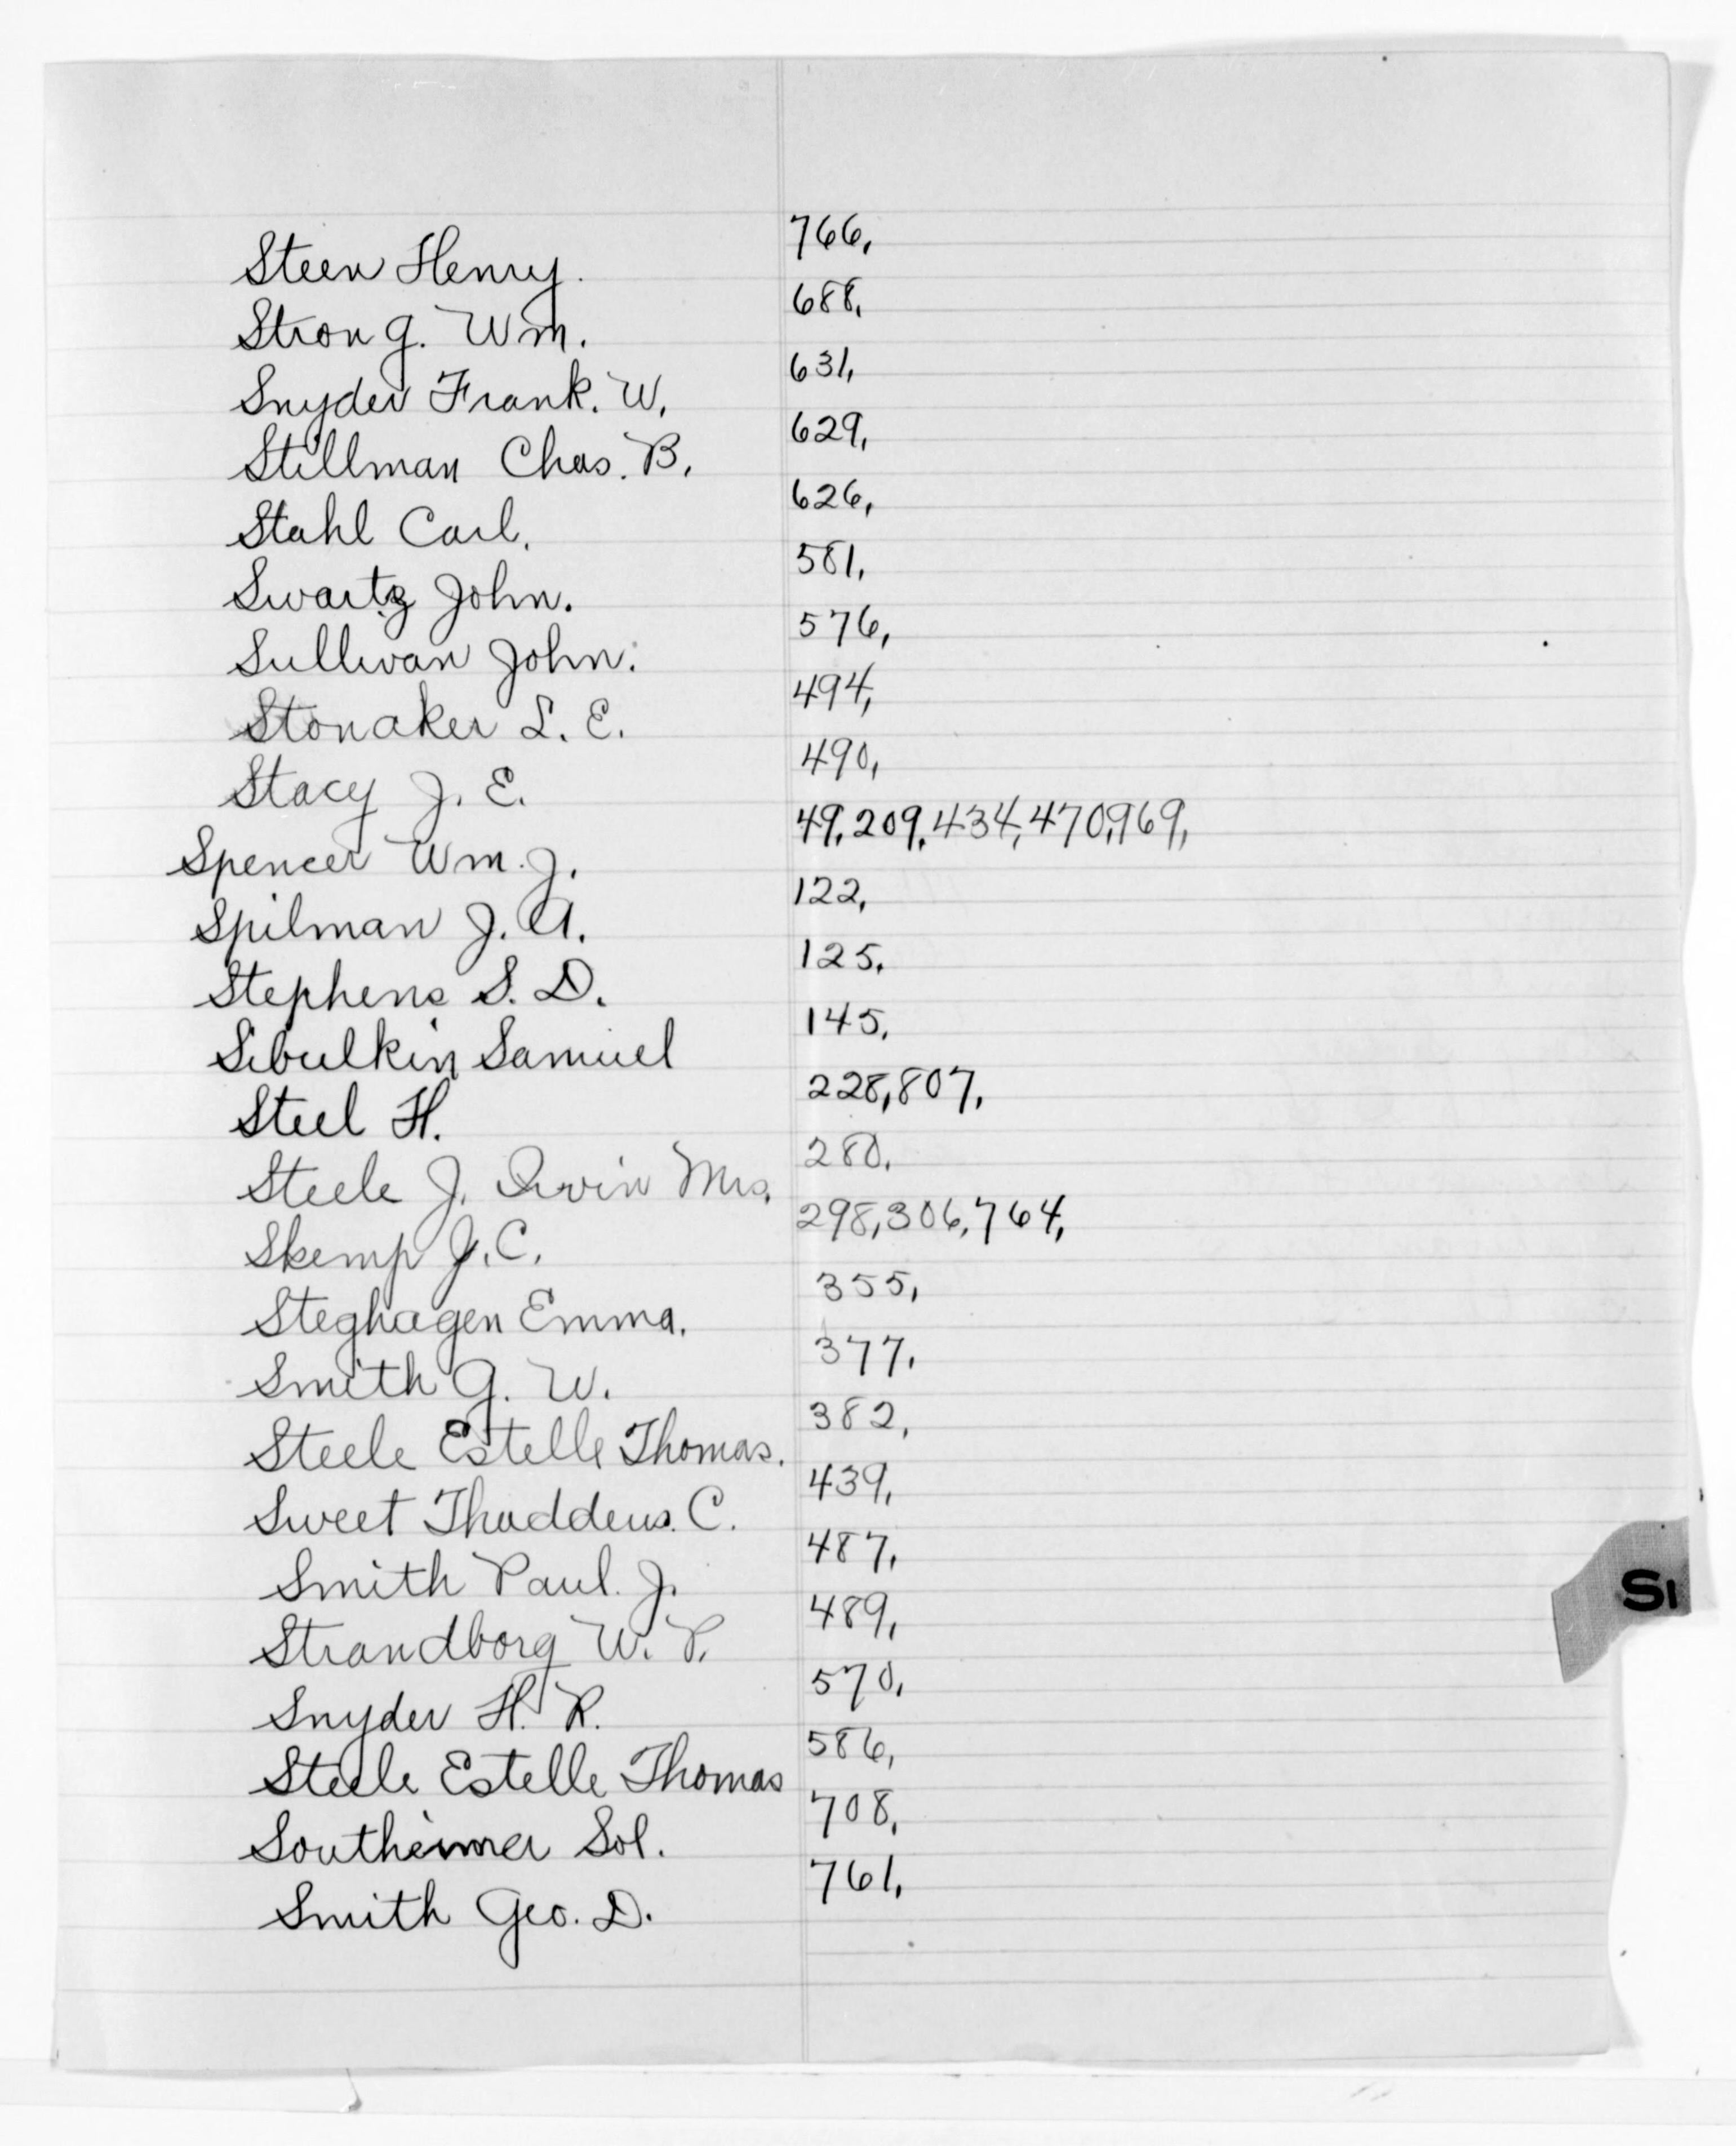 Steen Henry. 766,
Strong. Wm. 688,
Snyder Frank. W. 631,
Stillman Chas. B. 629,
Stahl Carl. 626,
Swartz John. 581,
Sullivan John. 576,
Stonaker L. E. 494,
Stacy J. E. 490,
Spencer Wm. J. 49, 209, 434, 470, 969,
Spilman J. A. 122,
Stephens S. D. 125.
Sibulkin Samuel 145.
Steel H. 228, 807,
Steele J. Irvin Mrs. 280.
Skemp J. C. 298, 306, 764,
Steghagen Emma. 355,
Smith G. W. 377.
Steele Estelle Thomas. 382,
Sweet Thaddeus. C. 439,
Smith Paul. J. 487,
Strandborg W. P. 489,
Snyder H. R. 570,
Steele Estelle Thomas 586,
Southeimer Sol. 708,
Smith Geo. D. 761,
SI